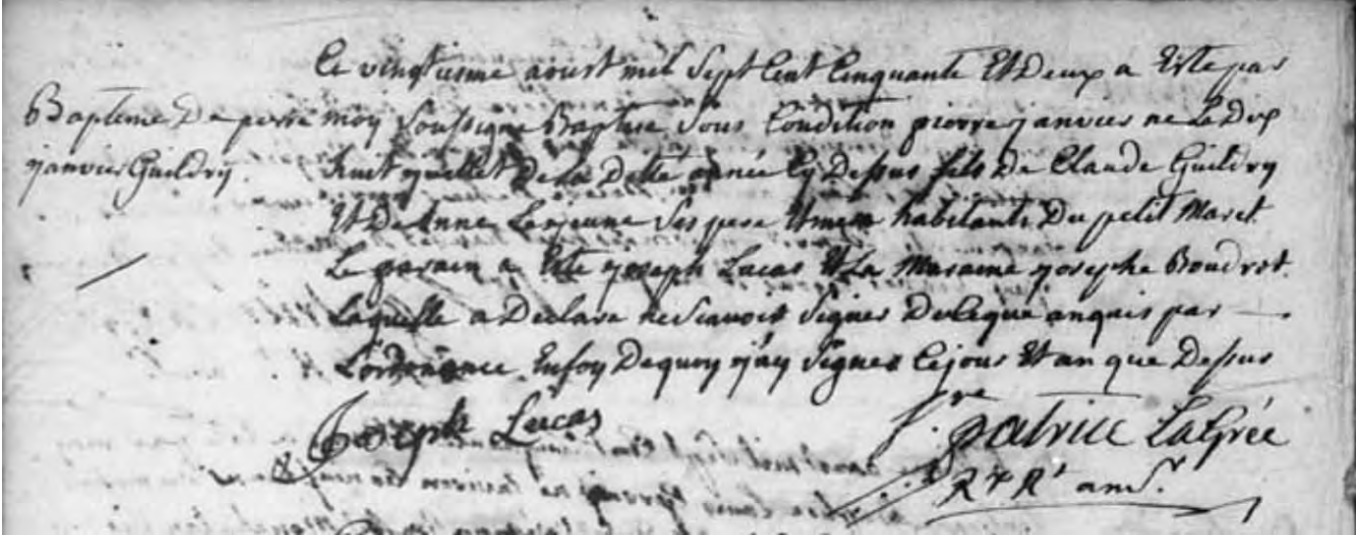 Le vingtiesme aoust mil sept Cent Cinquante Et Deux a Este par
Bapteme De pierre
janvier Guildry
moy soussigne Baptise sous Condition pierre janvier ne Le Dix
huit juillet De La Ditte année Cy Dessus fils De Claude Guildry
Et De Anne Lejeune ses pere Et mere habitants Du petit Maret
Le parain a Este joseph Lucas Et La Maraine josephe Boudrot
Laquelle a Declare ne scavoir signer De Ce que anquis par
L'ordonnance Enfoy Dequoy j'ay signes Ce jour Et an que Dessus
Joseph Lucas
f. patrice LaGrée
Rt Rt